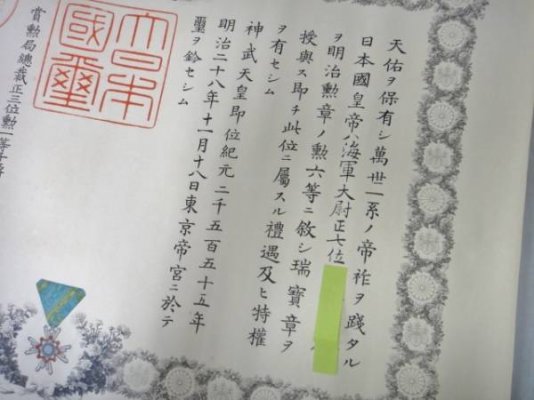 天佑ヲ保有シ萬世一系ノ帝祚ヲ踐タル
日本國皇帝ハ海軍大尉正七位
ヲ明治勳章ノ勳六等ニ敘シ瑞寶章ヲ
授與ス即チ此位ニ屬スル禮遇及ヒ特權
ヲ有セシム
神武天皇即位紀元二千五百五十五年
明治二十八年十一月十八日東京帝宮ニ於テ
璽ヲ鈐セシム
大日本
國璽
賞勳局總裁正三位勳一等